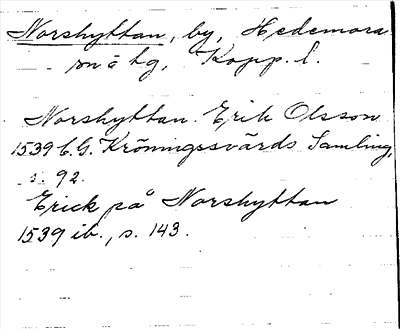 Norshyttan, by, Hedemora
sn ā tg, Kopp. l.
Norshyttan. Erik Olsson
1539 C. G. Kröningssvärds Samling,
s. 92.
Erick på Norshyttan
1539 ib., s. 143.